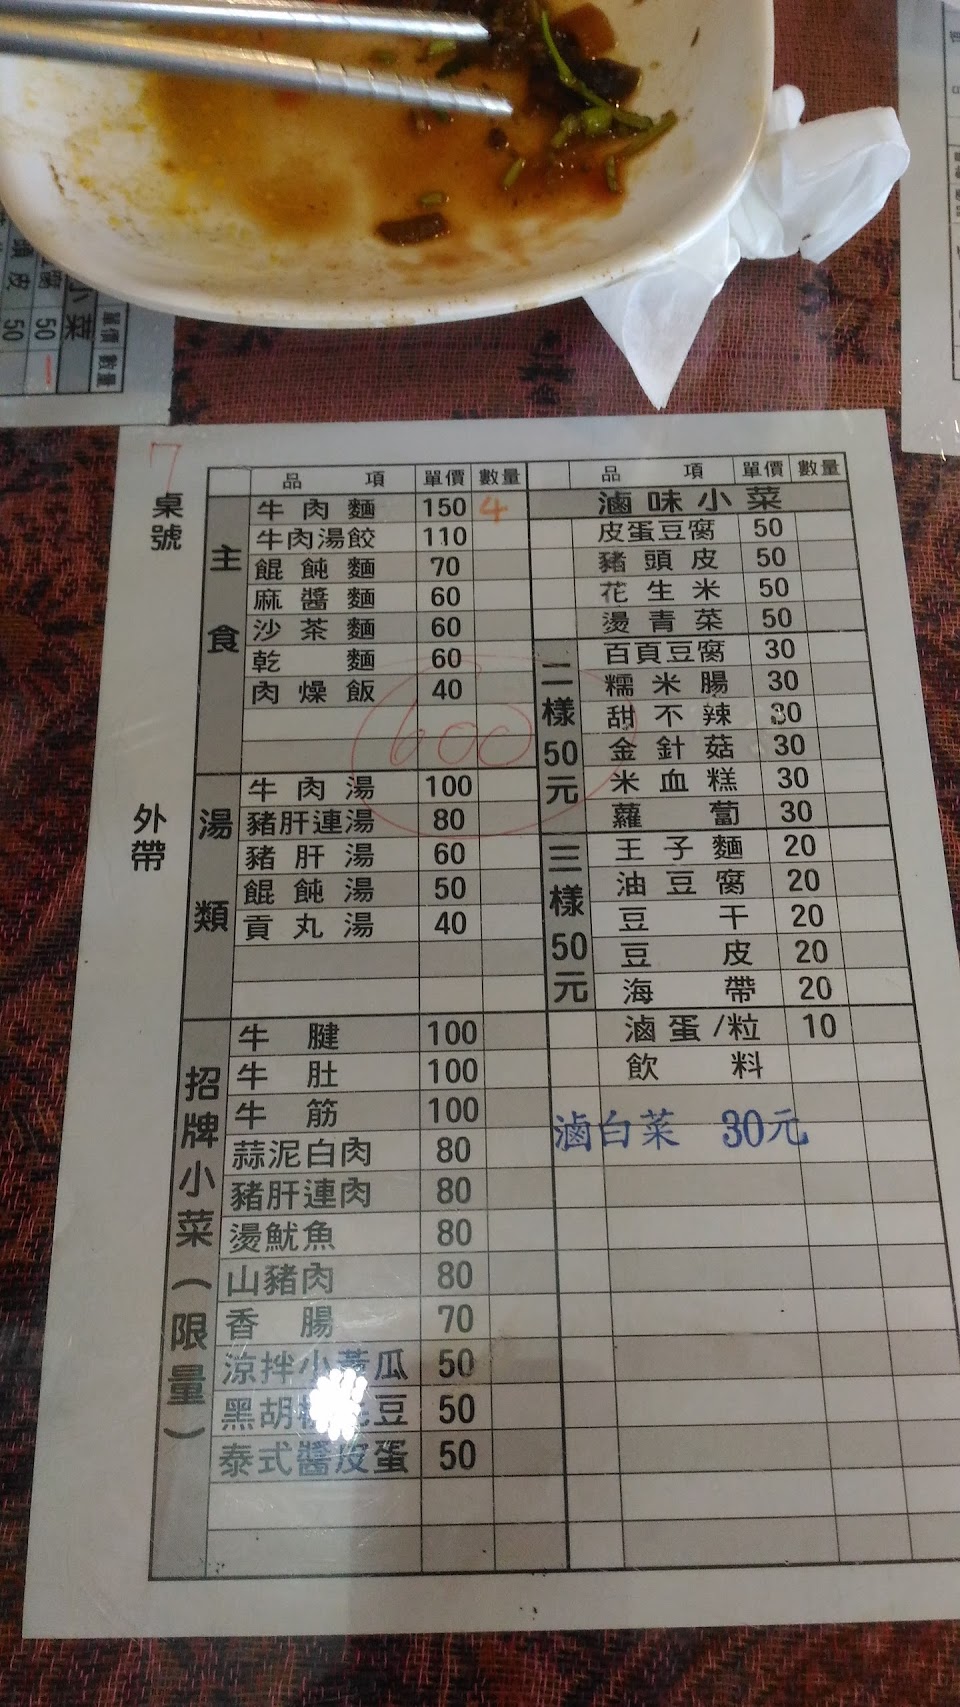 小菜 單價 數量
腐 50 一
頭皮 50
7
桌號
外帶
品項 單價 數量
主食
牛肉麵 150 4
牛肉湯餃 110
餛飩麵 70
麻醬麵 60
沙茶麵 60
乾麵 60
肉燥飯 40
600
湯類
牛肉湯 100
豬肝連湯 80
豬肝湯 60
餛飩湯 50
貢丸湯 40
招牌小菜(限量)
牛腱 100
牛肚 100
牛筋 100
蒜泥白肉 80
豬肝連肉 80
燙魷魚 80
山豬肉 80
香腸 70
涼拌小黃瓜 50
黑胡 豆 50
泰式醬皮蛋 50
品項 單價 數量
滷味小菜
皮蛋豆腐 50
豬頭皮 50
花生米 50
燙青菜 50
二樣50元
百頁豆腐 30
糯米腸 30
甜不辣 30
金針菇 30
米血糕 30
蘿蔔 30
三樣50元
王子麵 20
油豆腐 20
豆干 20
豆皮 20
海帶 20
滷蛋/粒 10
飲料
滷白菜 30元